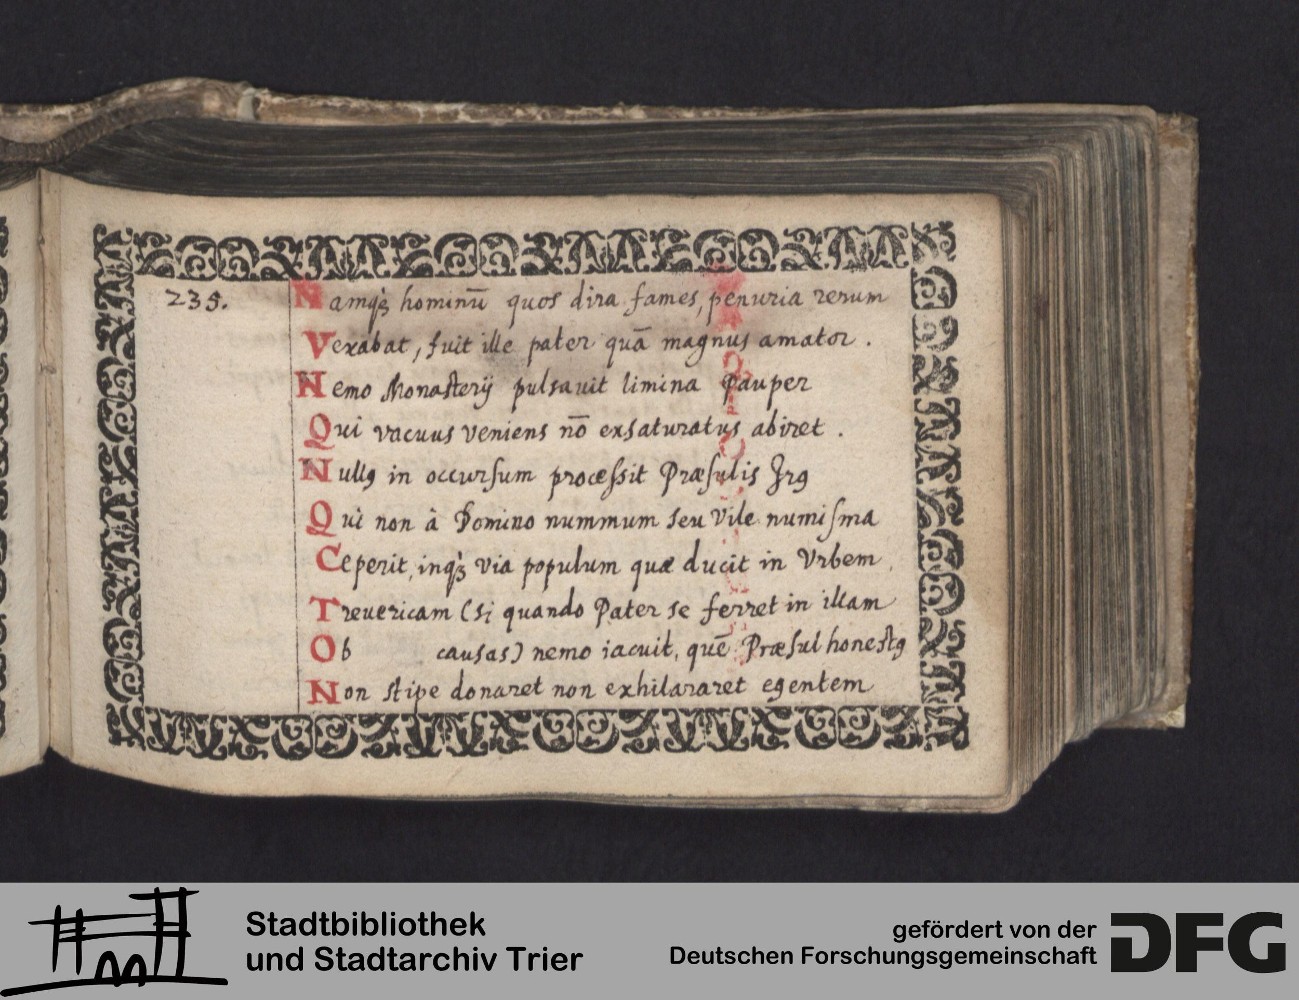 235.
Namq́ꝫ hominū quos dira fames, penuria rerum
Vexabat, fuit ille pater quā magnus amator.
Nemo Monasterÿ pulsauit limina Pauper
Qui vacuus veniens nō exsaturatus abiret.
Nullꝰ in occursum processit Præsulis Irꝰ
Qui non à Domino nummum seu Vile numisma
Ceperit, inq́ꝫ via populum quæ ducit in Vrbem,
Treuericam (si quando Pater se ferret in illam
Ob causas) nemo iacuit, quē Præsul honestꝰ
Non stipe donaret non exhilararet egentem
Stadtbibliothek
und Stadtarchiv Trier
gefördert von der
Deutschen Forschungsgemeinschaft
DFG